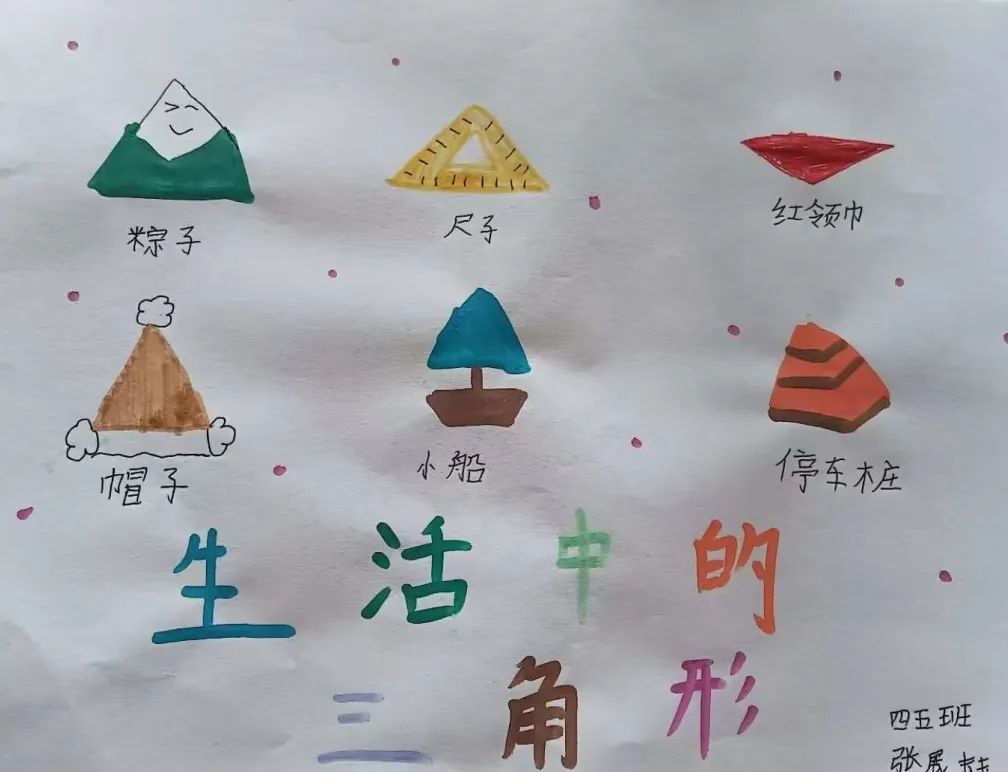 粽子 尺子 红领巾
帽子 小船 停车桩
生活中的
三角形
四五班
张展